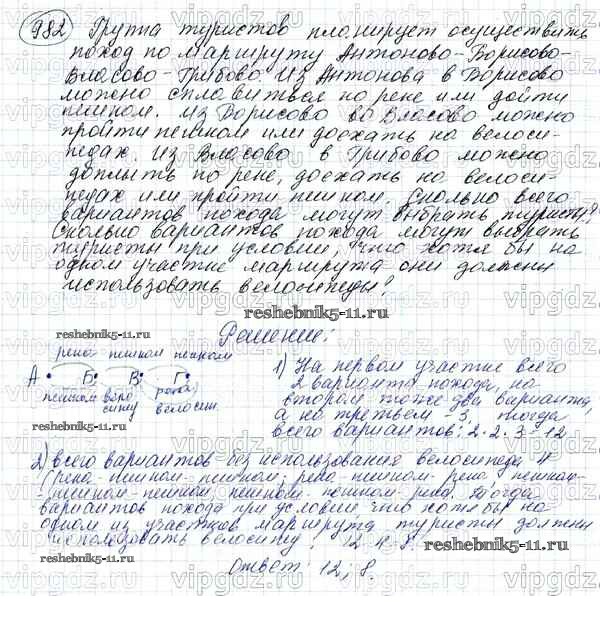 982 Группа туристов планирует осуществить
поход по маршруту Антоново-Борисово-
Власово-Грибово. Из Антонова в Борисово
можно сплавиться по реке или дойти
пешком. Из Борисово во Власово можно
пройти пешком или доехать на велоси-
педах. Из Власово в Грибово можно
доплыть по реке, доехать на велоси-
педах или пройти пешком. Сколько всего
вариантов похода могут выбрать туристы?
Сколько вариантов похода могут выбрать
туристы при условии, что хотя бы на
одном участке маршрута они должны
использовать велосипеды?
reshebnik5-11.ru
Решение:
река пешком пешком
А Б В Г
пешком вело река
сипу велосип.
reshebnik5-11.ru
1) На первом участке всего
2 варианта похода, на
втором тоже два варианта,
а на третьем - 3, тогда
всего вариантов: 2·2·3=12
2) всего вариантов без использования велосипеда 4
(река-пешком-пешком; река-пешком-река; пешком-
-пешком-пешком; пешком-пешком-река. Тогда
вариантов похода при условии, что хотя бы на
одном из участков маршрута туристы должны
использовать велосипед: 12-4=8.
reshebnik5-11.ru
reshebnik5-11.ru
Ответ: 12; 8.